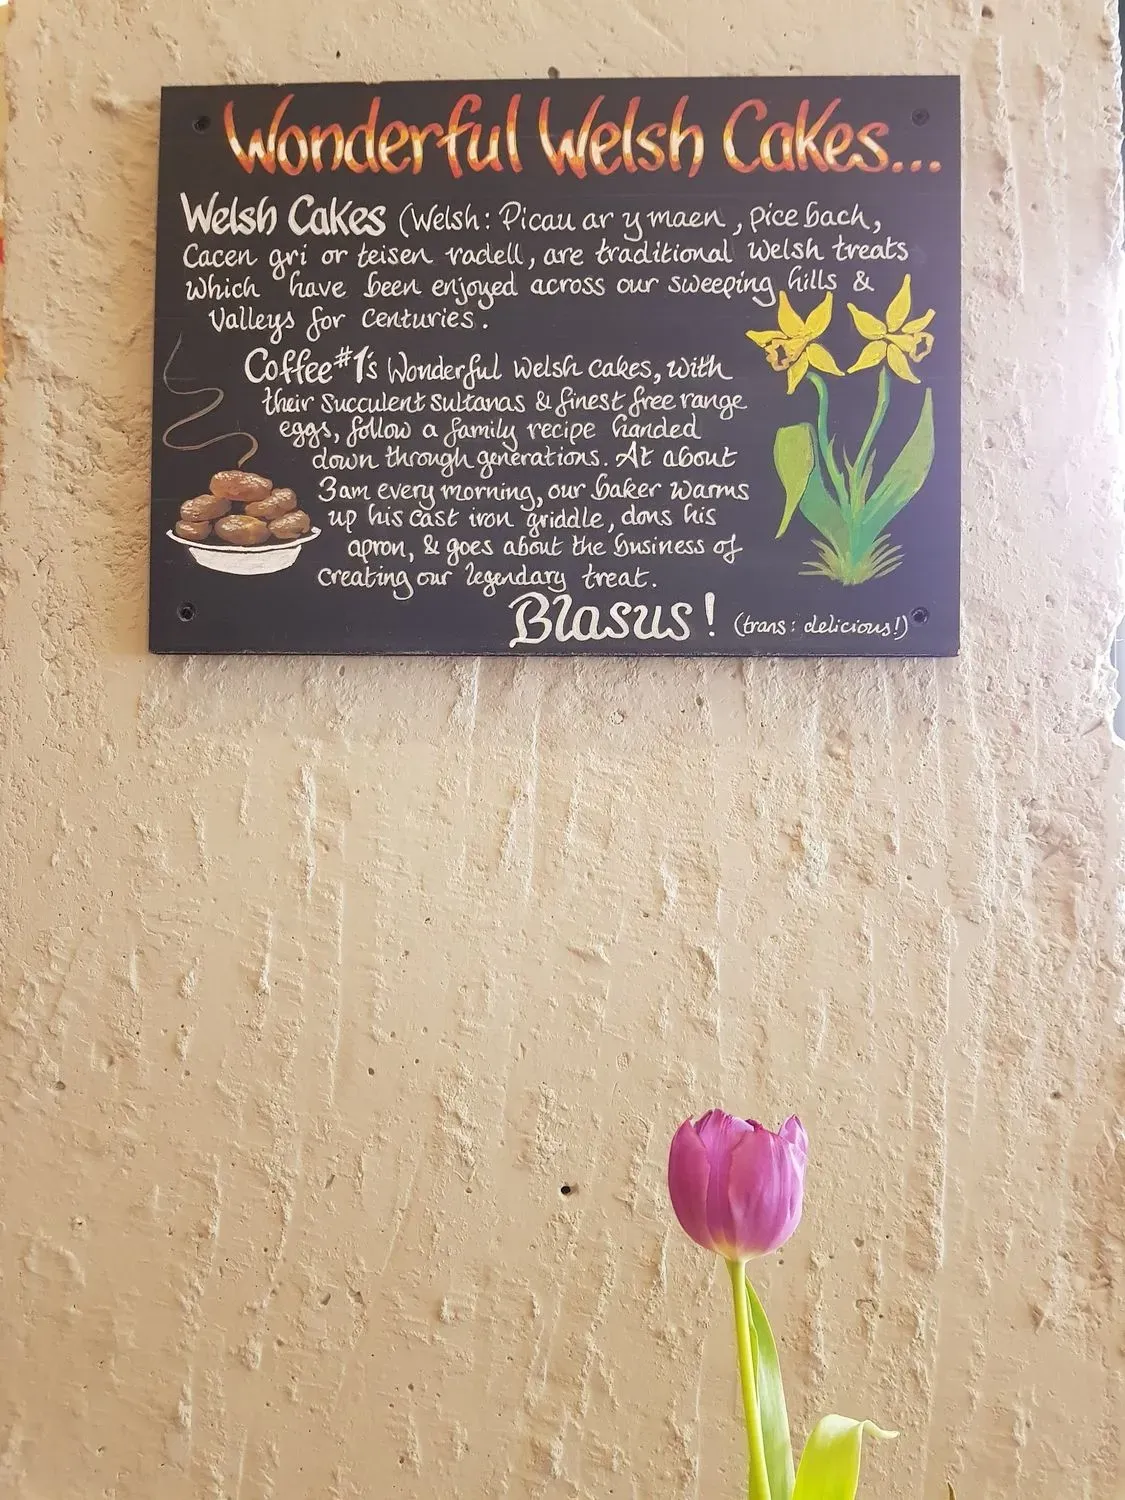 Wonderful Welsh Cakes...
Welsh Cakes (Welsh: Picau ar y maen, pice bach,
Cacen gri or teisen radell, are traditional Welsh treats
which have been enjoyed across our sweeping hills &
Valleys for Centuries.
Coffee#1's Wonderful Welsh cakes, with
their succulent sultanas & finest free range
eggs, follow a family recipe handed
down through generations. At about
3am every morning, our baker warms
up his cast iron griddle, dons his
apron, & goes about the business of
creating our legendary treat.
Blasus! (trans: delicious!)